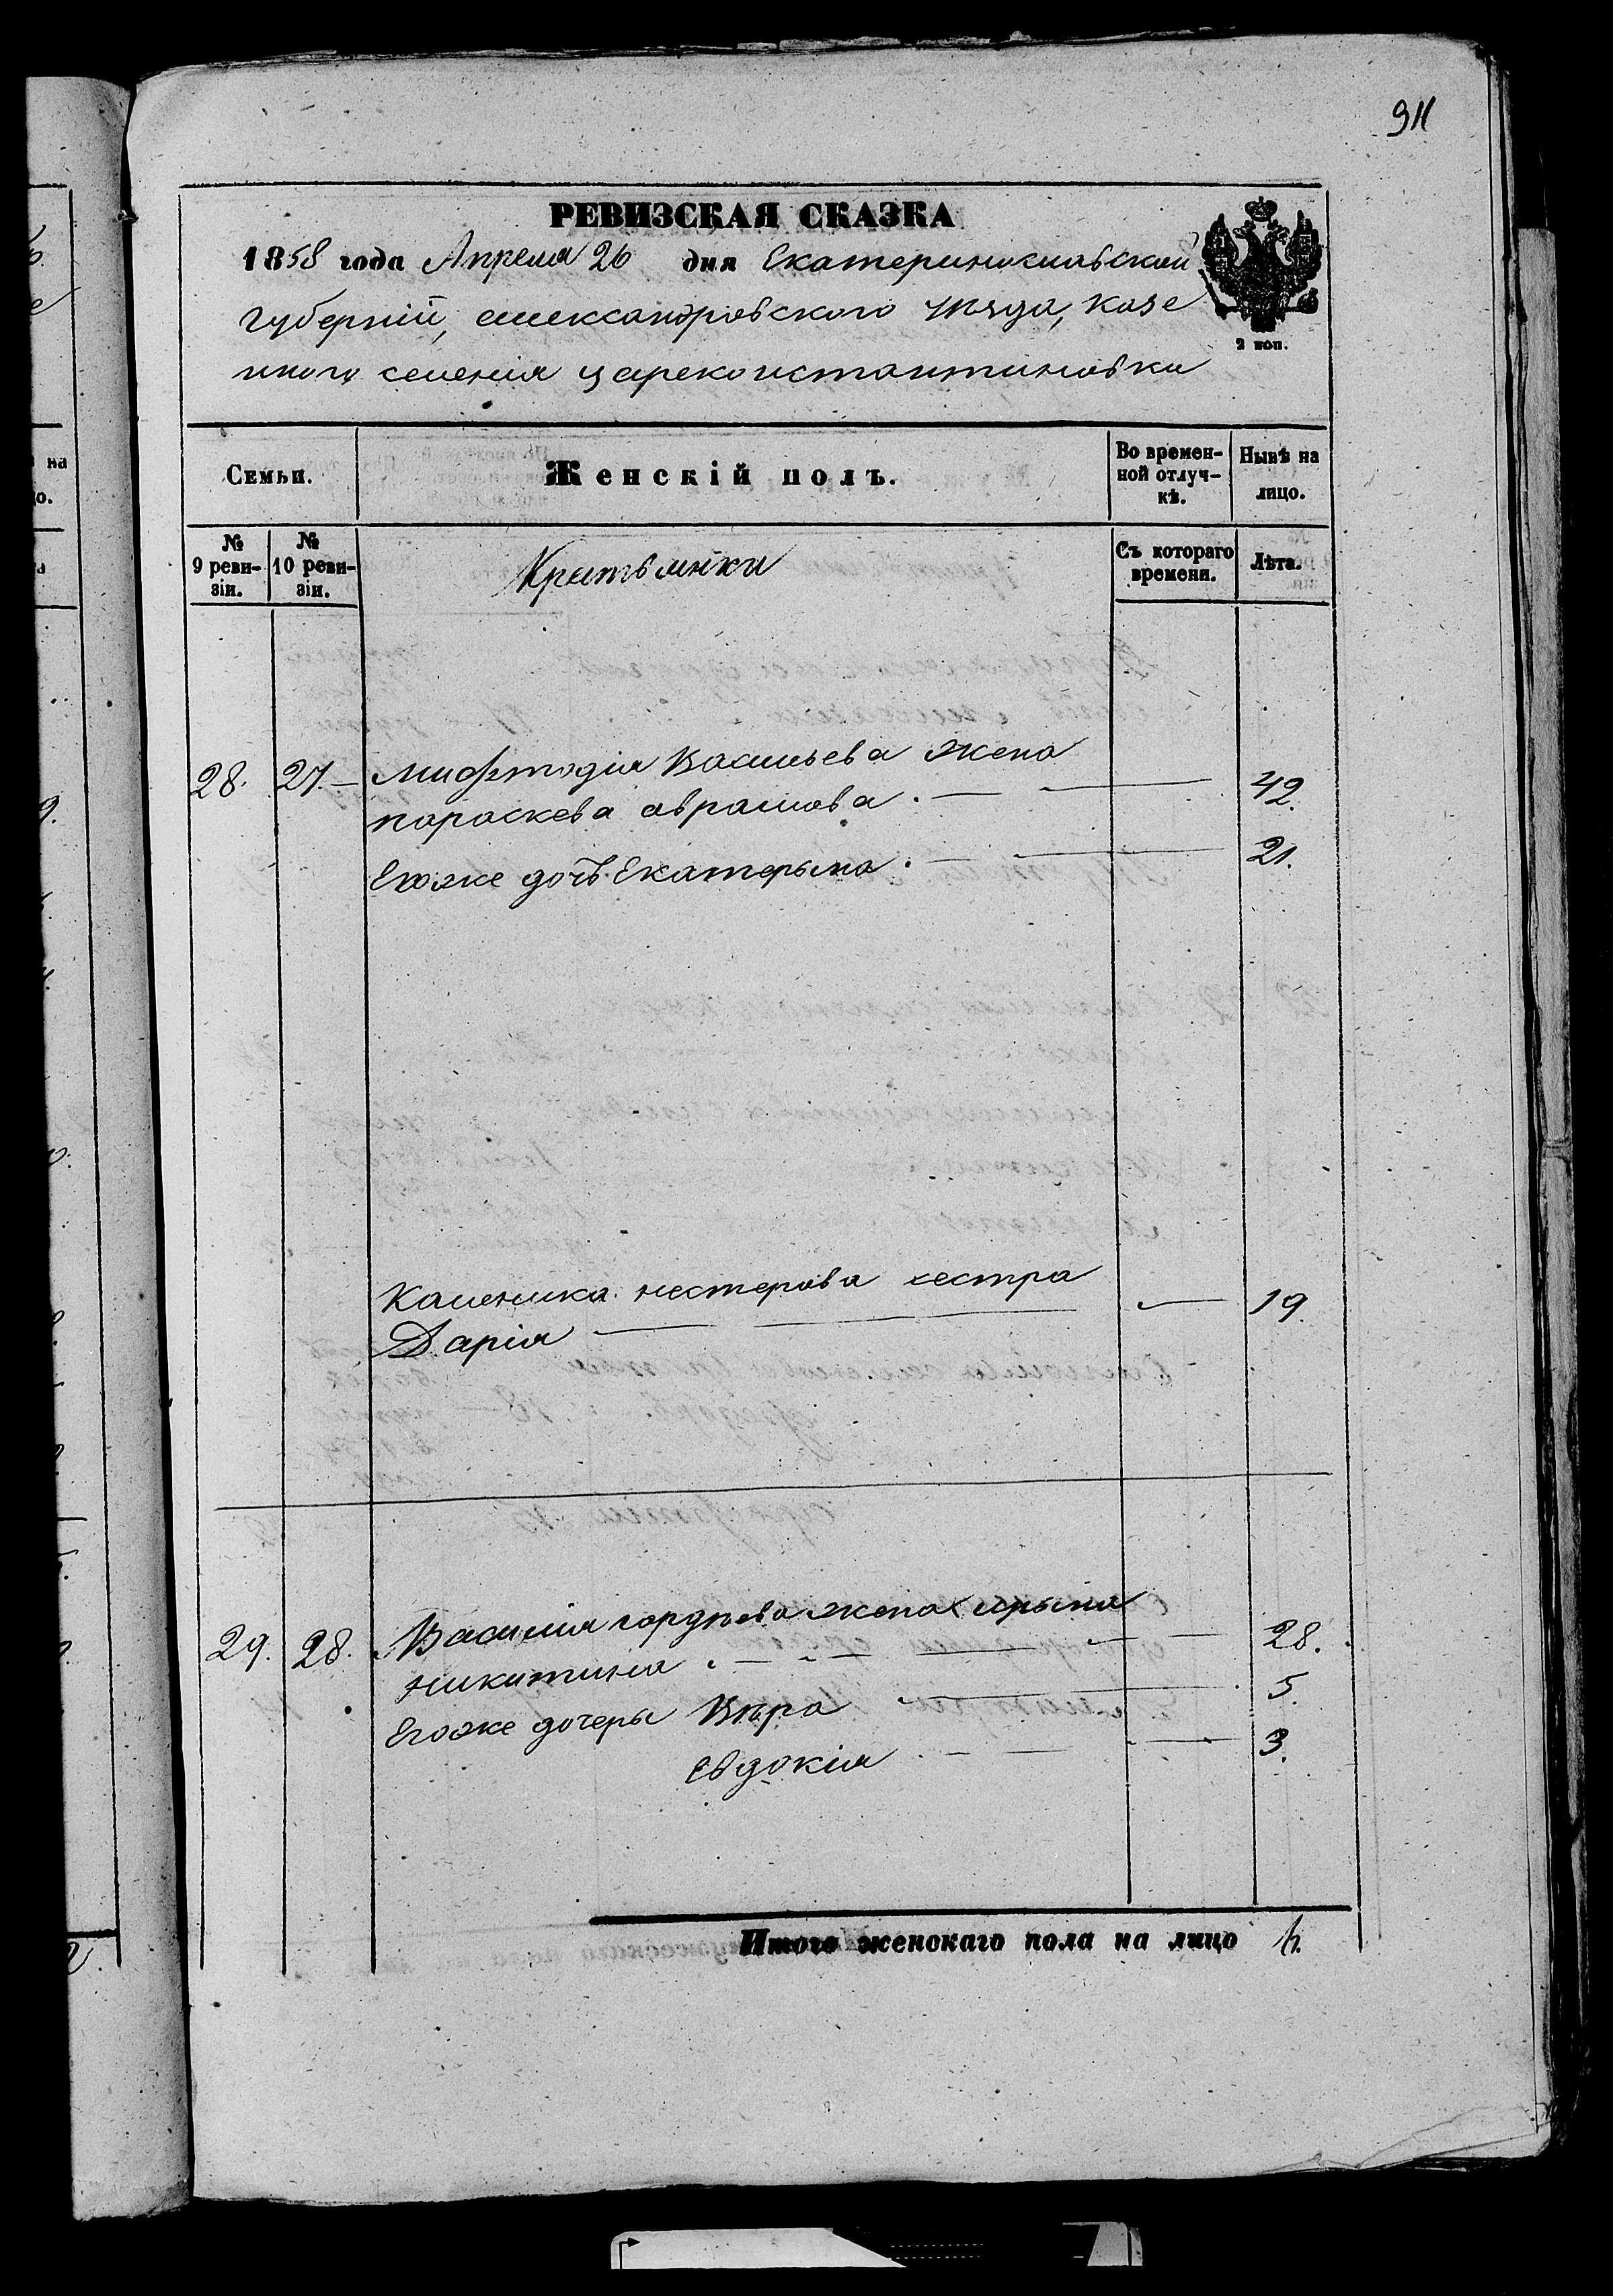 911
РЕВИЗСКАЯ СКАЗКА
1858 года Апреля 26 дня Екатеринославской
губерніи, александровского уезда, казе
нного селенія цареконстантиновки
2 коп.
Семьи. Женскій полъ. Во времен-ной отлуч-кѣ. Нынѣ на лицо.
№ 9 реви-зіи. № 10 реви-зіи. Крестьянки Съ котораго времени. Лѣта.
28. 27. Мифтодія Васильева жена
параскева аврамова. 42.
Егоже дочь Екатерына. 21.
Каленика нестерова сестра
Дарія 19.
29. 28. Василия гордѣева жена Ирына
никитина 28.
Егоже дочеры Вѣра 5.
Евдокія 3.
Итого женскаго пола на лицо 6.